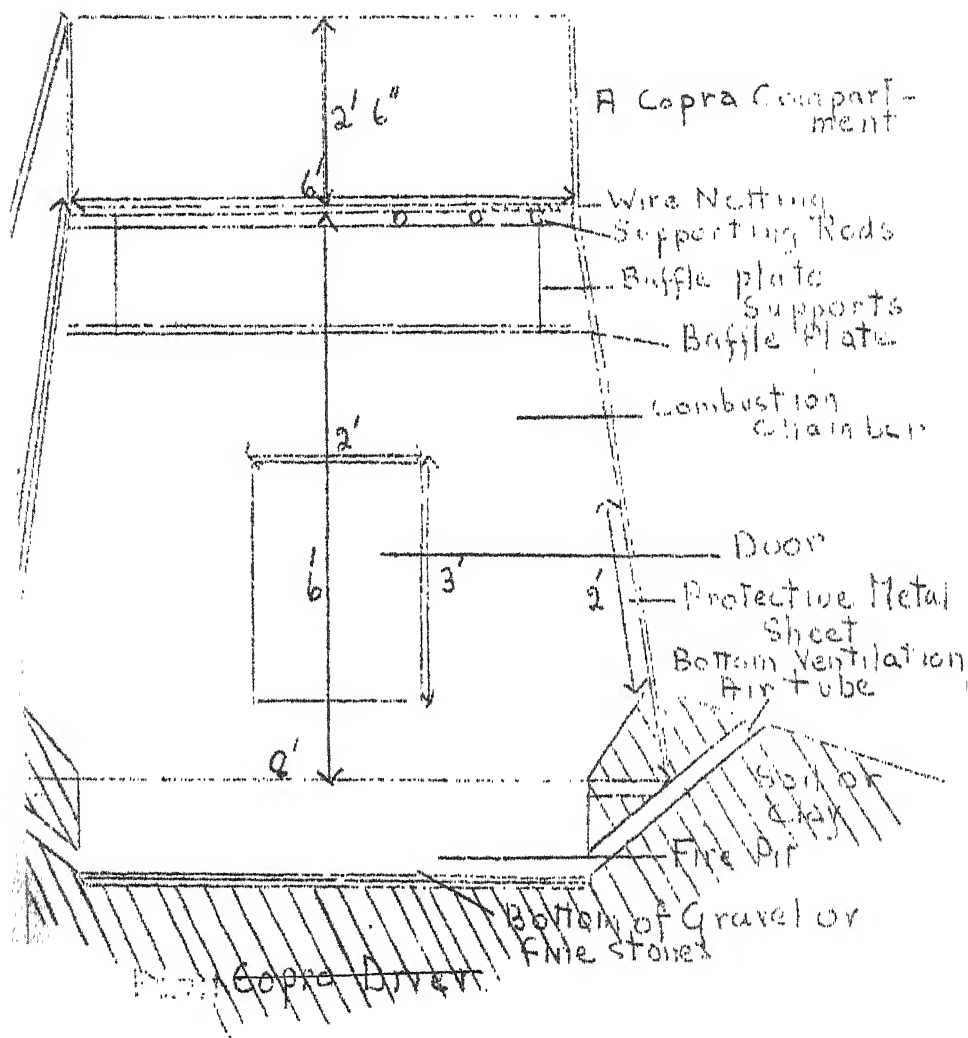 2' 6"
A Copra Compart-
ment
6'
Wire Netting
Supporting Rods
Baffle plate
Supports
Baffle Plate
Combustion
Chamber
2'
Door
6'
3'
2'
Protective Metal
Sheet
Bottom Ventilation
Air tube
8'
Soil or
Clay
Fire Pit
Bottom of Gravel or
Fine stones
Copra Drier